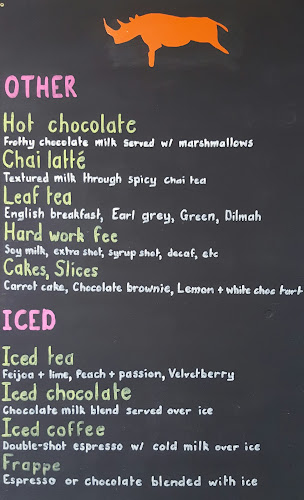 OTHER
Hot chocolate
Frothy chocolate milk served w/ marshmallows
Chai latté
Textured milk through spicy chai tea
Leaf tea
English breakfast, Earl grey, Green, Dilmah
Hard work fee
Soy milk, extra shot, syrup shot, decaf, etc
Cakes, Slices
Carrot cake, Chocolate brownie, Lemon + white choc tart
ICED
Iced tea
Feijoa + lime, Peach + passion, Velvetberry
Iced chocolate
Chocolate milk blend served over ice
Iced coffee
Double-shot espresso w/ cold milk over ice
Frappe
Espresso or chocolate blended with ice